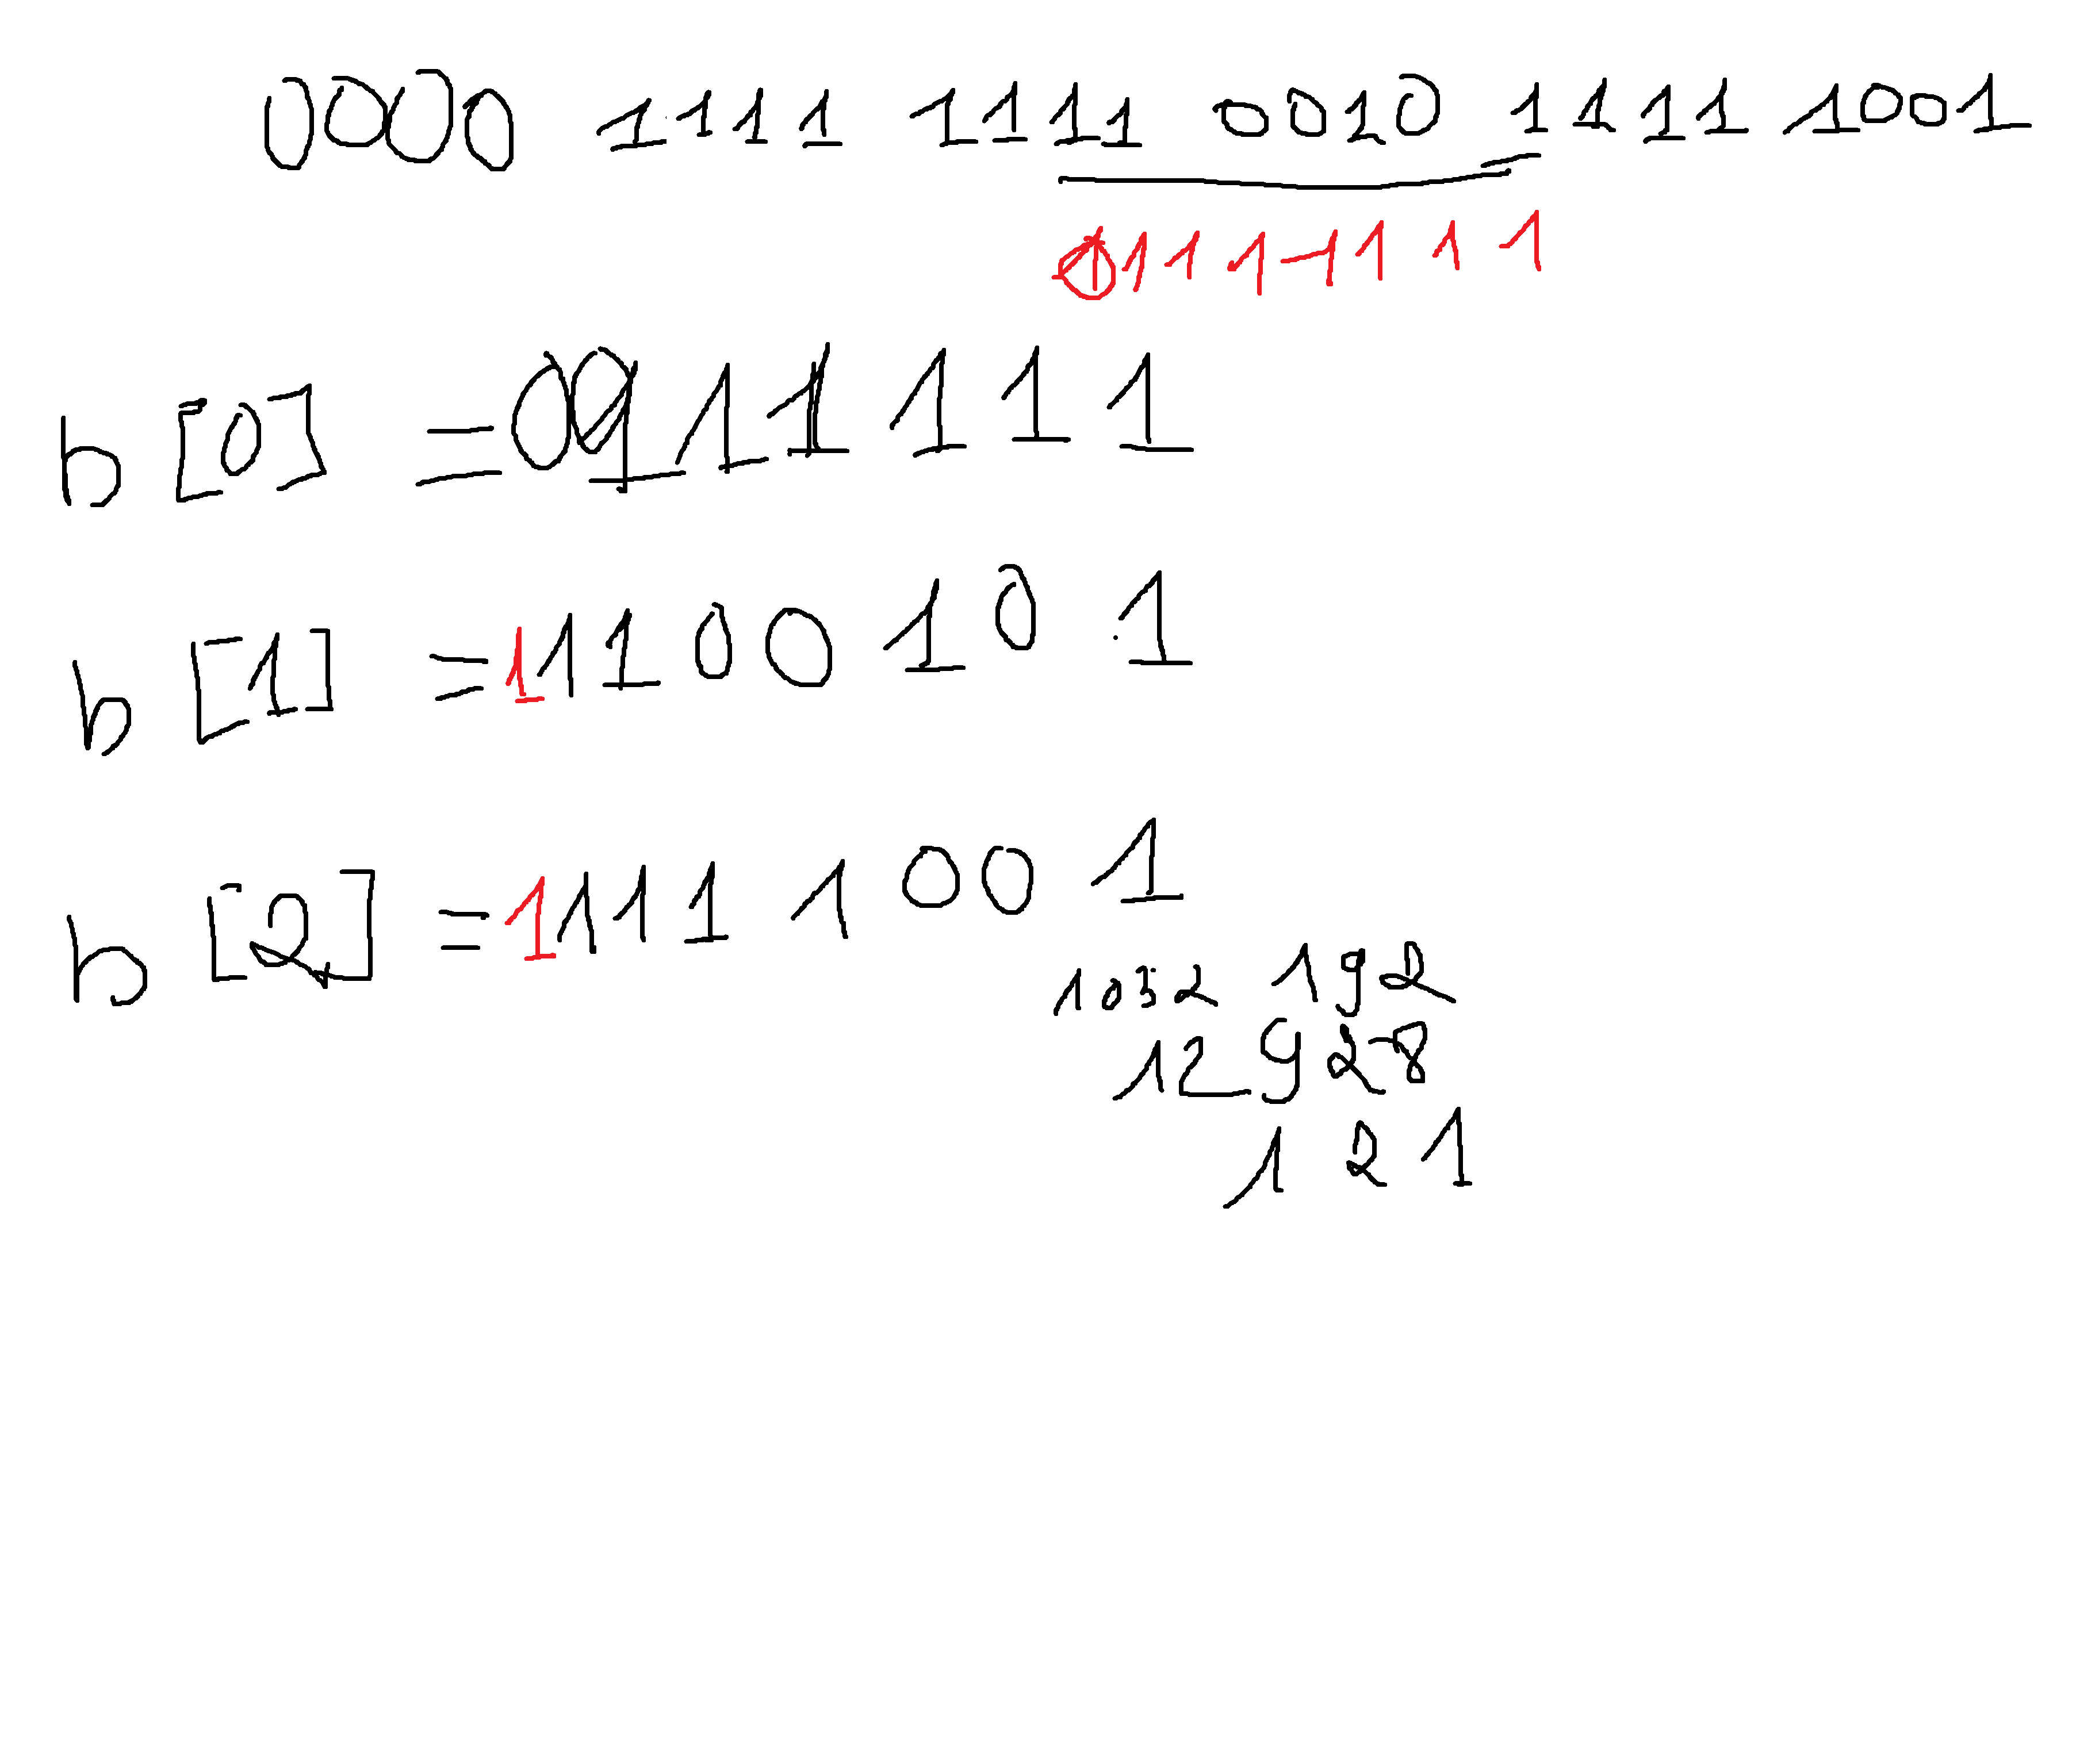 0000 1111 1111 0010 1111 1001
11111111
b[0] = 00111111
b[1] = 11100101
b[2] = 11111001
1032 192
12928
121